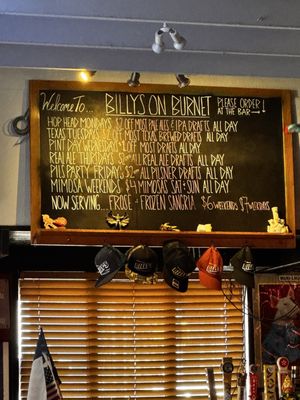 Welcome To... BILLY'S ON BURNET PLEASE ORDER!
AT THE BAR →
HOP HEAD MONDAYS $2 OFF MOST PALES & IPA DRAFTS ALL DAY
TEXAS TUESDAYS $2 OFF MOST TEXAS BREWED DRAFTS ALL DAY
PINT DAY WEDNESDAY $1 OFF MOST DRAFTS ALL DAY
REAL ALE THURSDAYS ALL REAL ALE DRAFTS ALL DAY
PILS PARTY FRIDAY ALL PILSNER DRAFTS ALL DAY
MIMOSA WEEKENDS $4 MIMOSAS SAT & SUN ALL DAY
NOW SERVING... FROSÉ & FROZEN SANGRIA $6 WEEKENDS $7 WEEKDAYS